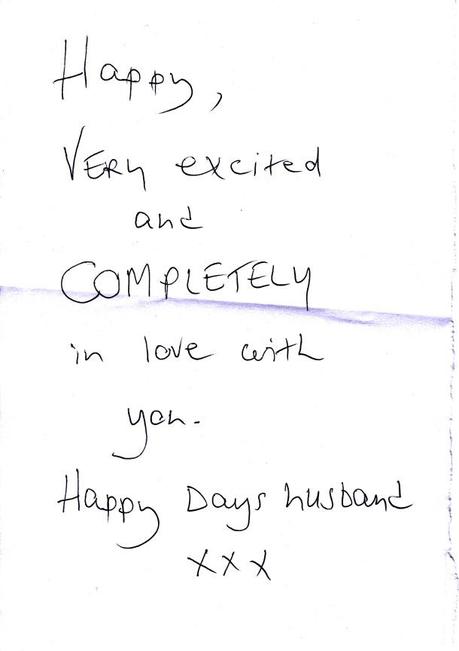 Happy,
VERY excited
and
COMPLETELY
in love with
you.
Happy Days husband
xxx